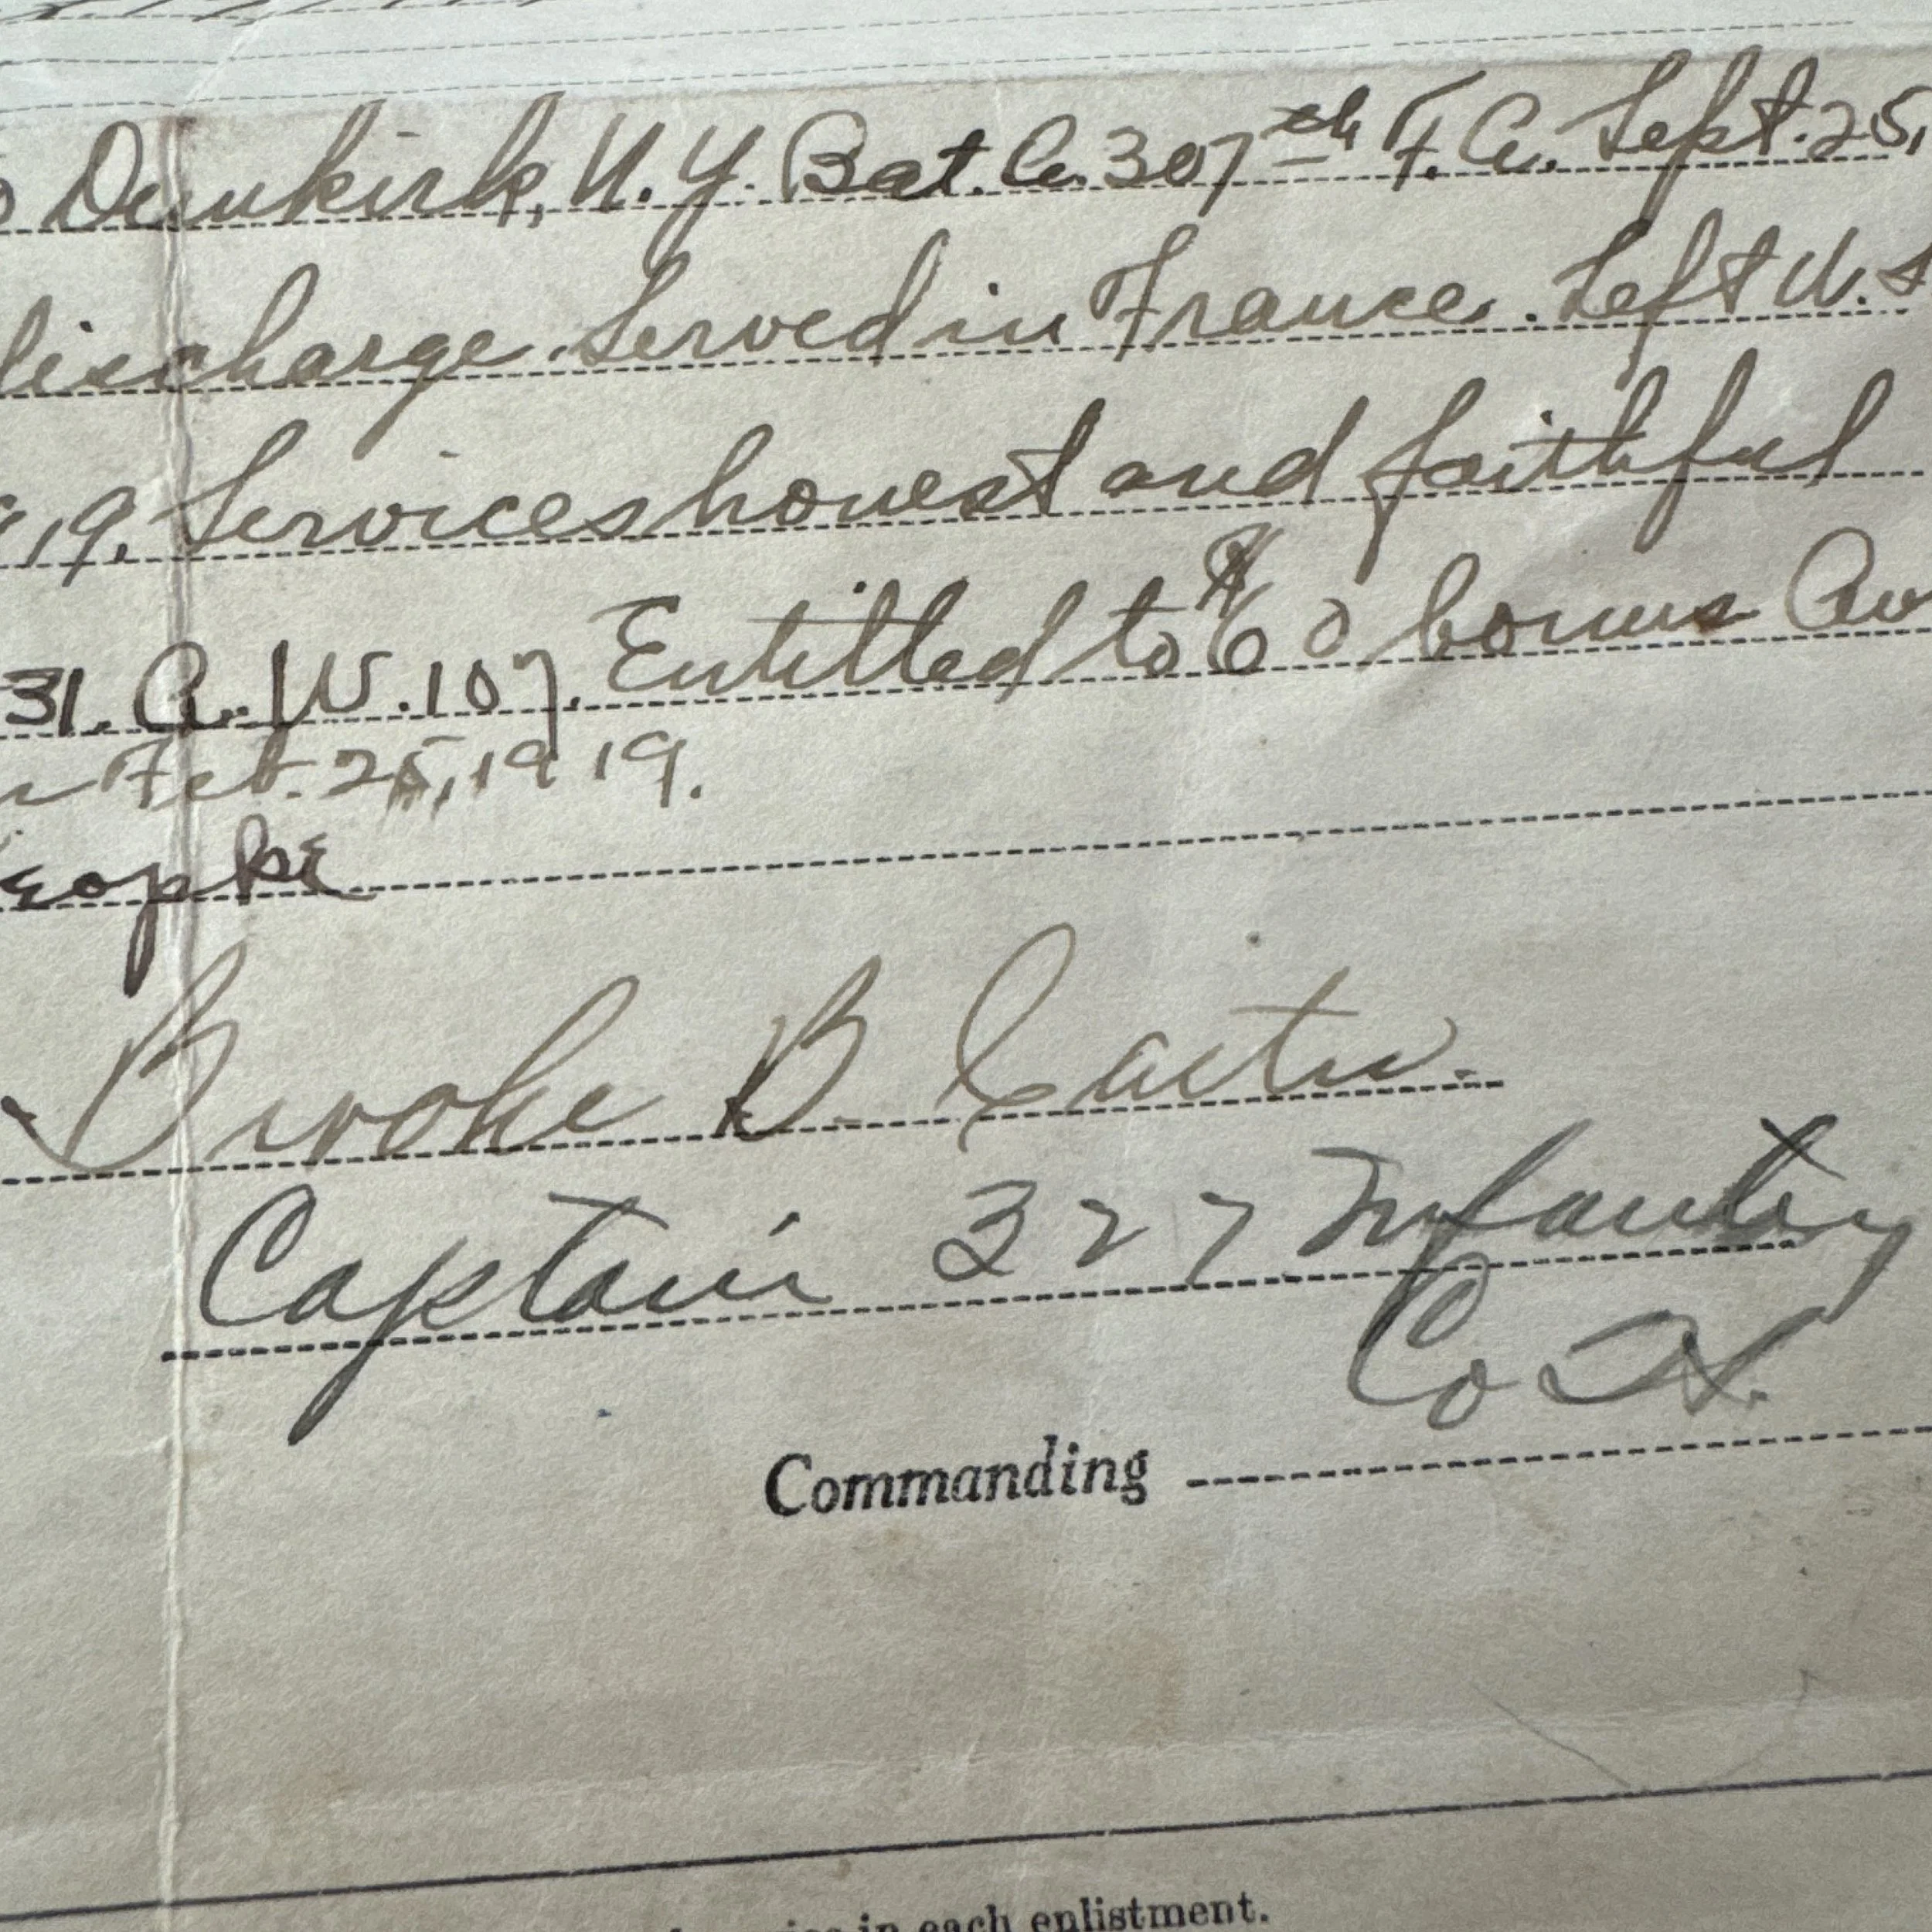 Dunkirk, N.Y. Bat. C. 307th F. A. Sept. 25,
discharge. Served in France. Left U. S
19. Services honest and faithful
31. A. W. 107. Entitled to $60 bonus
Feb. 25, 1919.
Brooke B.
Captain 327 Infantry
Co
Commanding
in each enlistment.